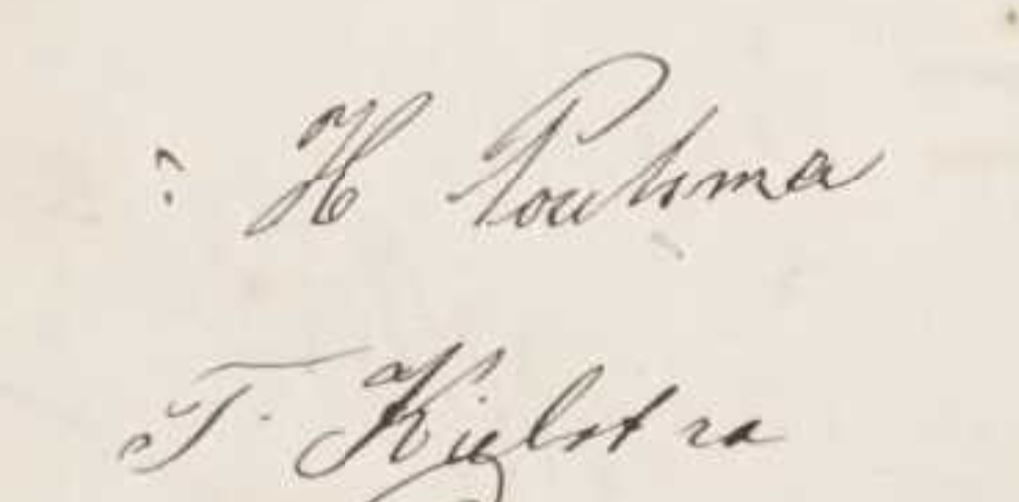 H Poutsma
T. Kielstra